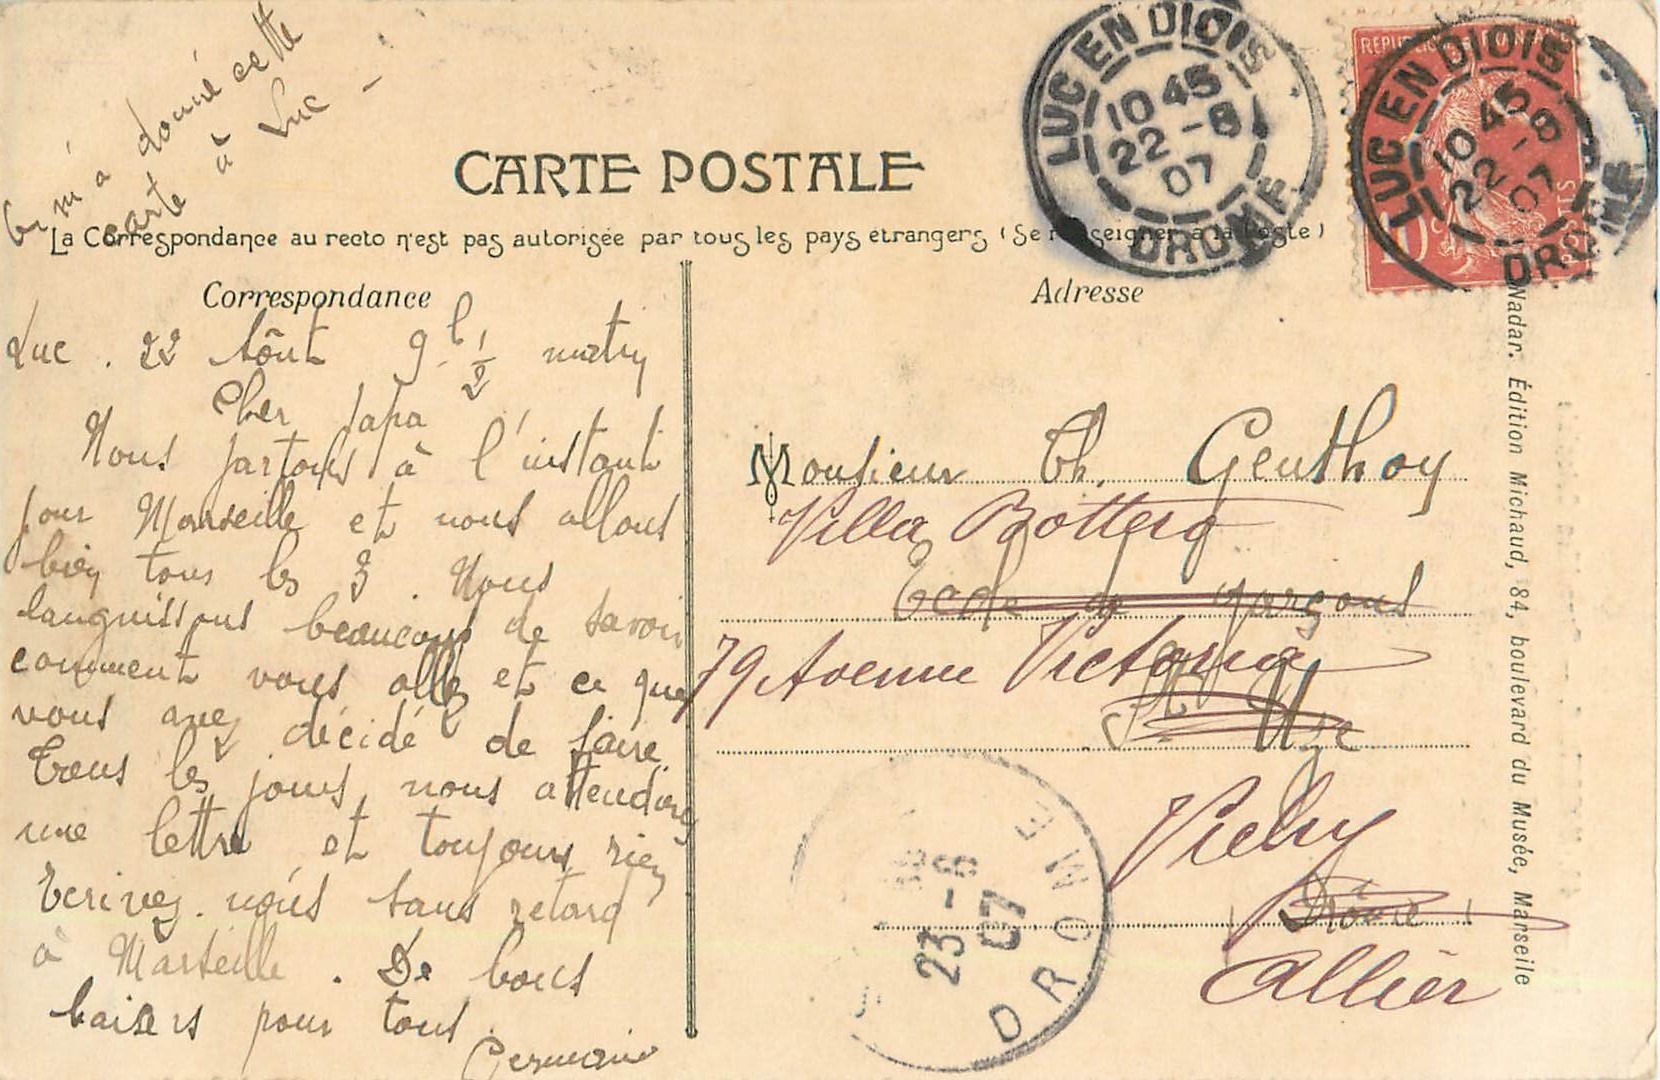 m'a donné cette
carte à Luc -
CARTE POSTALE
La Correspondance au recto n'est pas autorisée par tous les pays étrangers (Se renseigner à la Poste)
Correspondance
Luc . 22 Aôut 9 h 1/2 matin
Cher Papa
Nous partons à l'instant
pour Marseille et nous allons
bien tous les 3 . Nous
languissons beaucoup de savoir
comment vous allez et ce que
vous avez décidé de faire.
Tous les jours, nous attendons
une lettre et toujours rien
Ecrivez nous sans retard
à Marseille . De bons
baisers pour tous.
Germain
Adresse
Monsieur Th. Genthoy
Villa Bottero
Ecole de garçons
79 Avenue Victoria
St Uze
Vichy
Drôme
Allier
LUC EN DIOIS
10 45
22 -8
07
DROME
REPUBLIQUE FRANÇAISE
10 c
LUC EN DIOIS
10 45
22 -8
07
DROME
23 -8
07
DROME
Nadar. Édition Michaud, 84, boulevard du Musée, Marseille